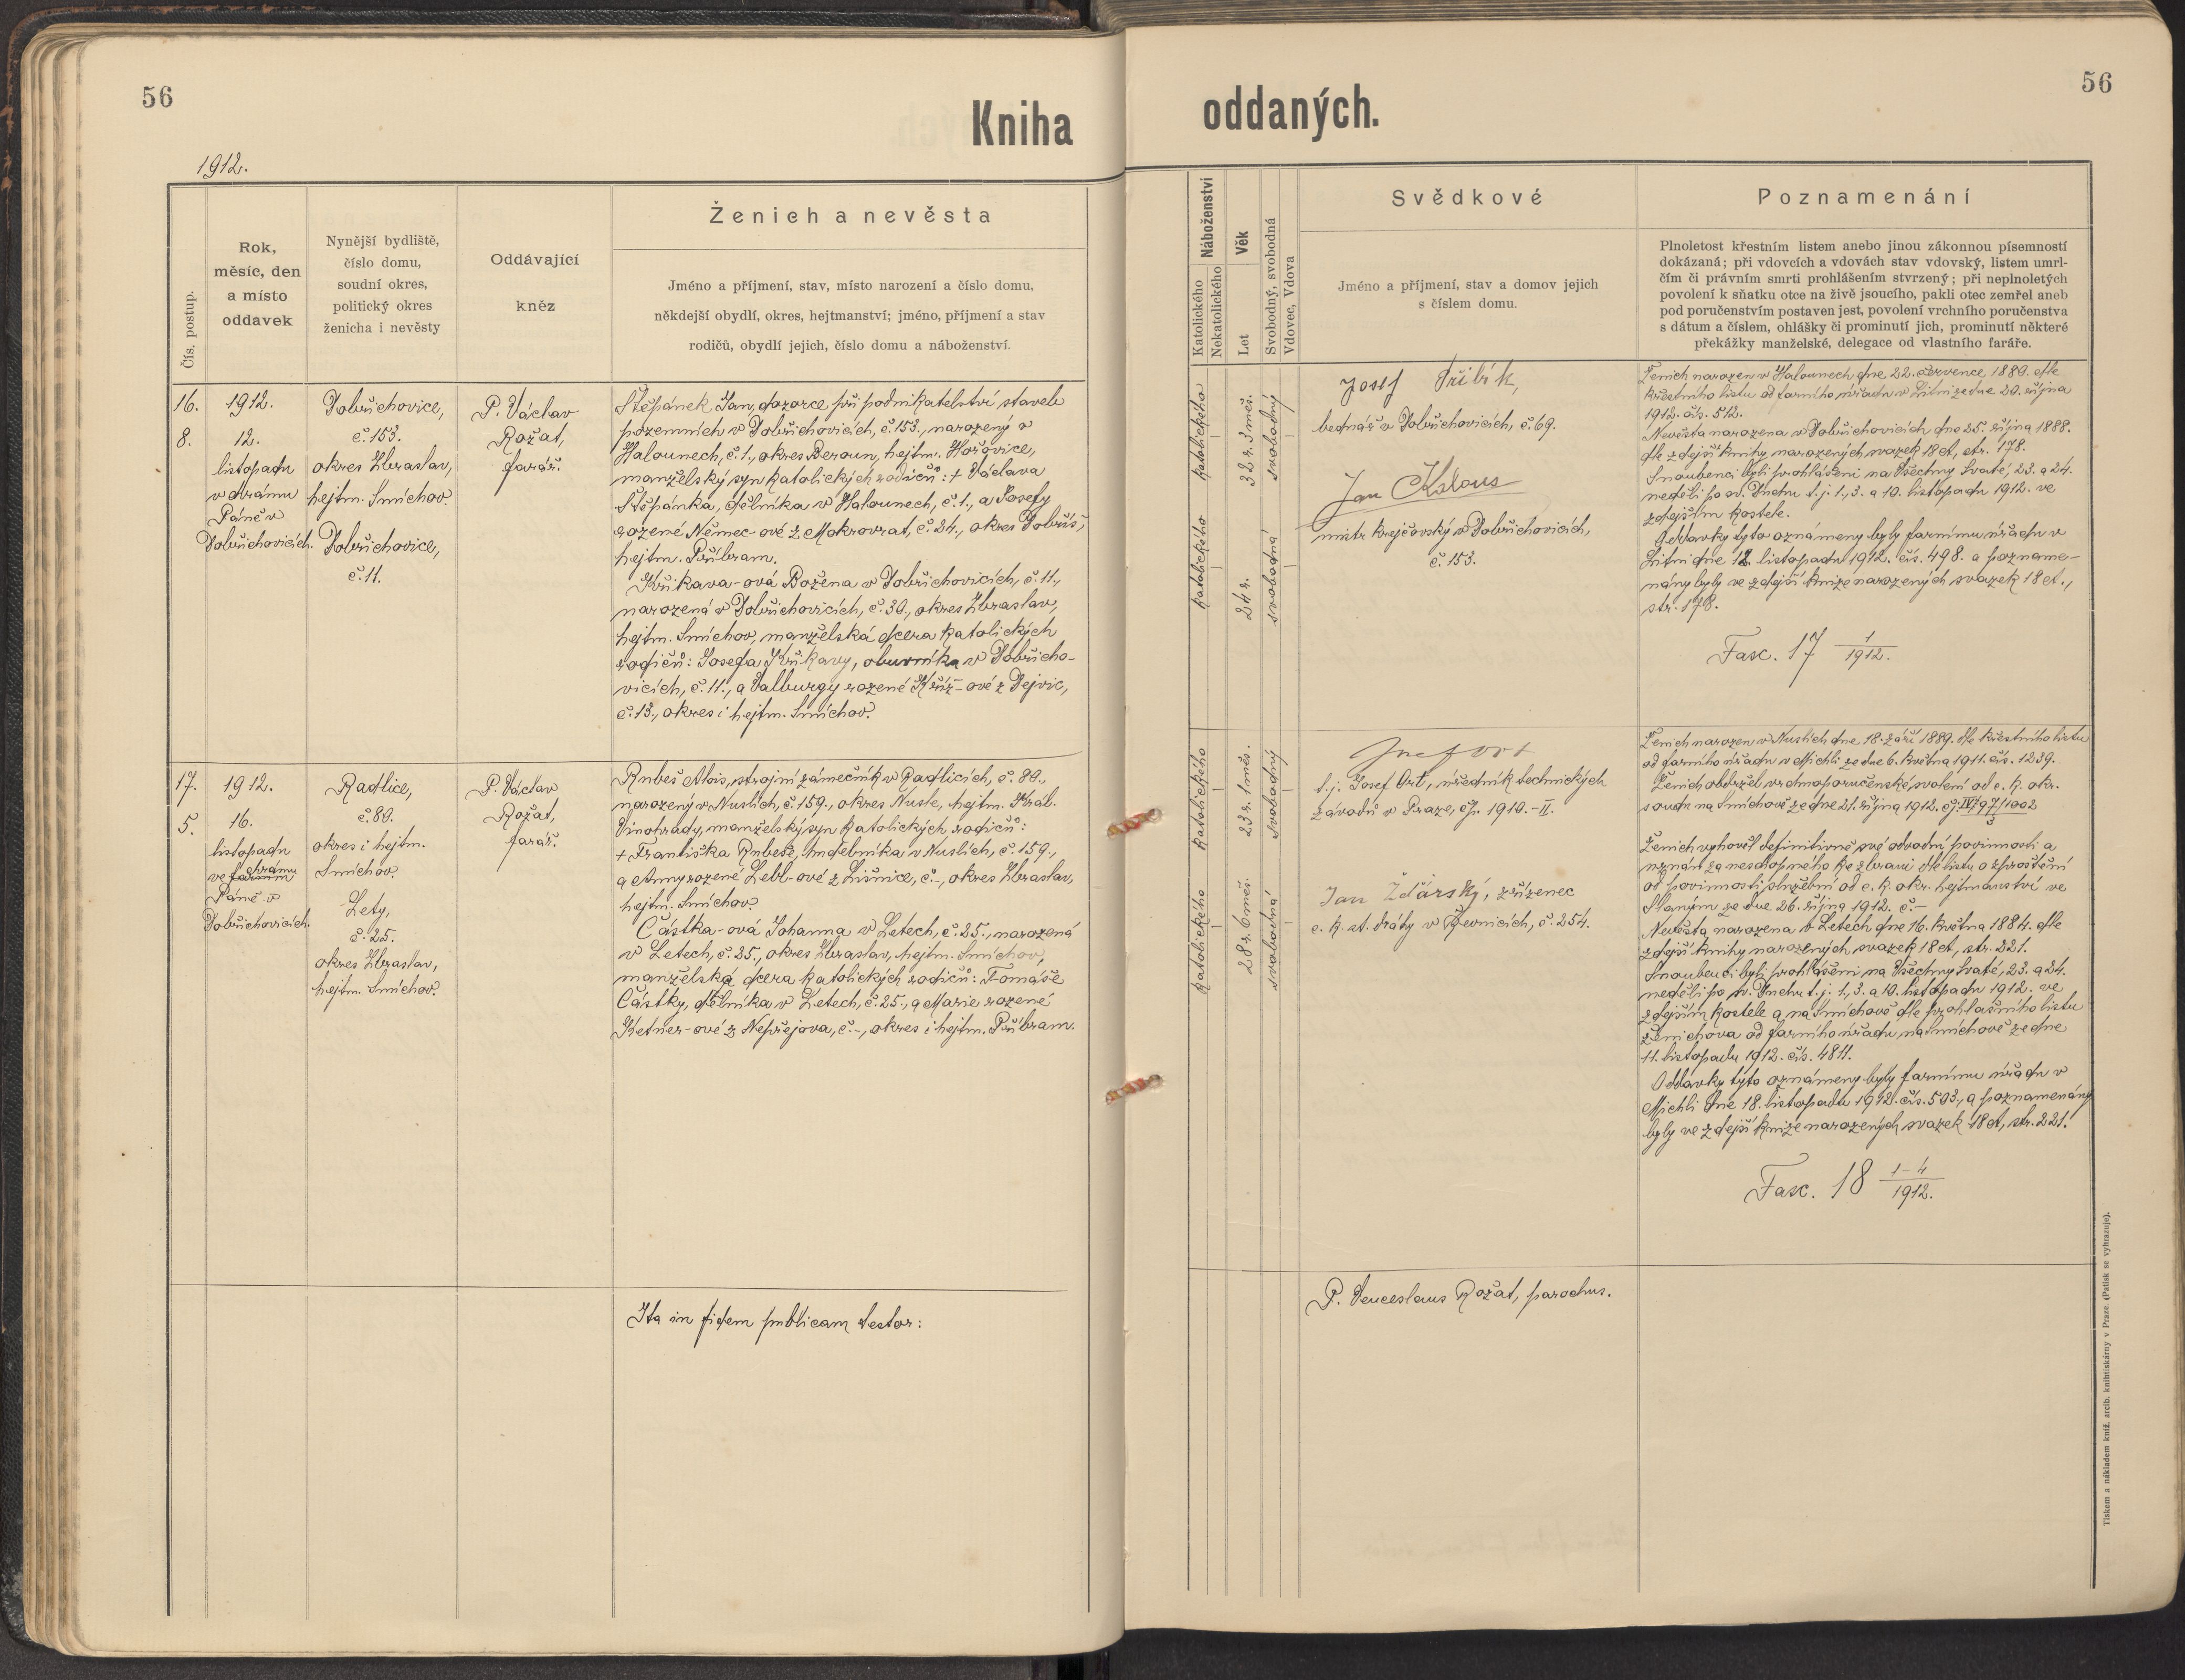 56
Kniha
1912.
Čís. postup.
Rok,
měsíc, den
a místo
oddavek
Nynější bydliště,
číslo domu,
soudní okres,
politický okres
ženicha i nevěsty
Oddávající
kněz
Ženich a nevěsta
Jméno a příjmení, stav, místo narození a číslo domu,
někdejší obydlí, okres, hejtmanství; jméno, příjmení a stav
rodičů, obydlí jejich, číslo domu a náboženství.
16.
8.
1912.
12.
listopadu
v chrámu
Páně v
Dobřichovicích.
Dobřichovice,
č. 153.
okres Zbraslav,
hejtm. Smíchov.
Dobřichovice,
č. 11.
P. Václav
Rožat,
farář.
Štěpánek Jan, dozorce při podnikatelství staveb
pozemních v Dobřichovicích, č. 153., narozený v
Halounech, č. 1., okres Beroun, hejtm. Hořovice,
manželský syn katolických rodičů: + Václava
Štěpánka, dělníka v Halounech, č. 1., a Josefy
rozené Němec-ové z Mokrovrat, č. 24., okres Dobříš,
hejtm. Příbram.
Křikava-ová Božena v Dobřichovicích, č. 11.,
narozená v Dobřichovicích, č. 30., okres Zbraslav,
hejtm. Smíchov, manželská dcera katolických
rodičů: Josefa Křikavy, obuvníka v Dobřicho-
vicích, č. 11., a Valburgy rozené Kříž-ové z Dejvic,
č. 13., okres i hejtm. Smíchov.
17.
5.
1912.
16.
listopadu
ve farním chrámu
Páně v
Dobřichovicích.
Radlice,
č. 80.
okres i hejtm.
Smíchov.
Lety,
č. 25.
okres Zbraslav,
hejtm. Smíchov.
P. Václav
Rožat,
farář.
Rubeš Alois, strojní zámečník v Radlicích, č. 80.,
narozený v Nuslích, č. 159., okres Nusle, hejtm. Král.
Vinohrady, manželský syn katolických rodičů:
+ Františka Rubeše, hudebníka v Nuslích, č. 159.,
a Anny rozené Lebl-ové z Líšnice, č. -, okres Zbraslav,
hejtm. Smíchov.
Částka-ová Johanna v Letech, č. 25., narozená
v Letech, č. 25., okres Zbraslav, hejtm. Smíchov,
manželská dcera katolických rodičů: Tomáše
Částky, dělníka v Letech, č. 25., a Marie rozené
Ketner-ové z Nepřejova, č. -, okres i hejtm. Příbram.
Ita in fidem publicam testor:
56
oddaných.
Náboženství
Katolického
Nekatolického
Věk
Let
Svobodný, svobodná
Vdovec, Vdova
Svědkové
Jméno a příjmení, stav a domov jejich
s číslem domu.
Poznamenání
Plnoletost křestním listem anebo jinou zákonnou písemností
dokázaná; při vdovcích a vdovách stav vdovský, listem umrl-
čím či právním smrti prohlášením stvrzený; při neplnoletých
povolení k sňatku otce na živě jsoucího, pakli otec zemřel aneb
pod poručenstvím postaven jest, povolení vrchního poručenstva
s dátum a číslem, ohlášky či prominutí jich, prominutí některé
překážky manželské, delegace od vlastního faráře.
katolického
katolického
32 r. 3 měs.
24 r.
svobodný
svobodná
Josef Tribík,
bednář v Dobřichovicích, č. 69.
Jan Kalous
mistr krejčovský v Dobřichovicích,
č. 153.
Ženich narozen v Halounech dne 22. července 1880. dle
křestního listu od farního úřadu v Litni ze dne 20. října
1912. čís. 512.
Nevěsta narozena v Dobřichovicích dne 25. října 1888.
dle zdejší knihy narozených svazek 18 ct, str. 178.
Snoubenci byli prohlášeni na Všechny Svaté, 23. a 24.
neděli po sv. Duchu t. j. 1., 3. a 10. listopadu 1912. ve
zdejším kostele.
Oddavky tyto oznámeny byly farnímu úřadu v
Litni dne 12. listopadu 1912. čís. 498. a pozname-
nány byly ve zdejší knize narozených svazek 18 ct.,
str. 178.
Fasc. 17 1/1912.
katolického
katolického
23 r. 1 měs.
28 r. 6 měs.
svobodný
svobodná
t. j. Josef Ort, úředník technických
závodů v Praze, čp. 1910.-II.
Jan Žďárský, zřízenec
c. k. st. dráhy v Řevnicích, č. 254.
Ženich narozen v Nuslích dne 18. září 1889. dle křestního listu
od farního úřadu v Michli ze dne 6. května 1911. čís. 1239.
Ženich obdržel vrchnoporučenské svolení od c. k. okr.
soudu na Smíchově ze dne 21. října 1912. čj.
Ženich vyhověl definitivně své odvodní povinnosti a
uznán za neschopného ke zbrani dle listu o zproštění
od povinnosti služební od c. k. okr. hejtmanství ve
Slaným ze dne 26. října 1912. č. -
Nevěsta narozena v Letech dne 16. května 1884. dle
zdejší knihy narozených svazek 18 ct, str. 221.
Snoubenci byli prohlášeni na Všechny Svaté, 23. a 24.
neděli po sv. Duchu t. j. 1., 3. a 10. listopadu 1912. ve
zdejším kostele a na Smíchově dle prohlašního listu
ženichova od farního úřadu na Smíchově ze dne
11. listopadu 1912. čís. 4811.
Oddavky tyto oznámeny byly farnímu úřadu v
Michli dne 18. listopadu 1912. čís. 503., a poznamenány
byly ve zdejší knize narozených svazek 18 ct, str. 221.
Fasc. 18 1-4/1912.
P. Venceslaus Rožat, parochus.
Tiskem a nákladem kníž. arcib. knihtiskárny v Praze. (Patisk se vyhrazuje).